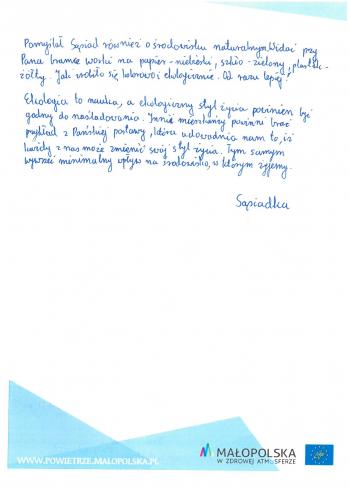 Pomyślał Sąsiad również o środowisku naturalnym. Widać przy
Pana bramce worki na papier - niebieski, szkło - zielony, plastik -
żółty. Jak zrobiło się kolorowo i ekologicznie. Od razu lepiej!
Ekologia to nauka, a ekologiczny styl życia powinien być
godny do naśladowania. Innie mieszkańcy powinni brać
przykład z Pańskiej postawy, która udowadnia nam to, iż
każdy z nas może zmienić swój styl życia. Tym samym
wywrzeć minimalny wpływ na środowisko, w którym żyjemy.
Sąsiadka
WWW.POWIETRZE.MALOPOLSKA.PL
MAŁOPOLSKA
W ZDROWEJ ATMOSFERZE